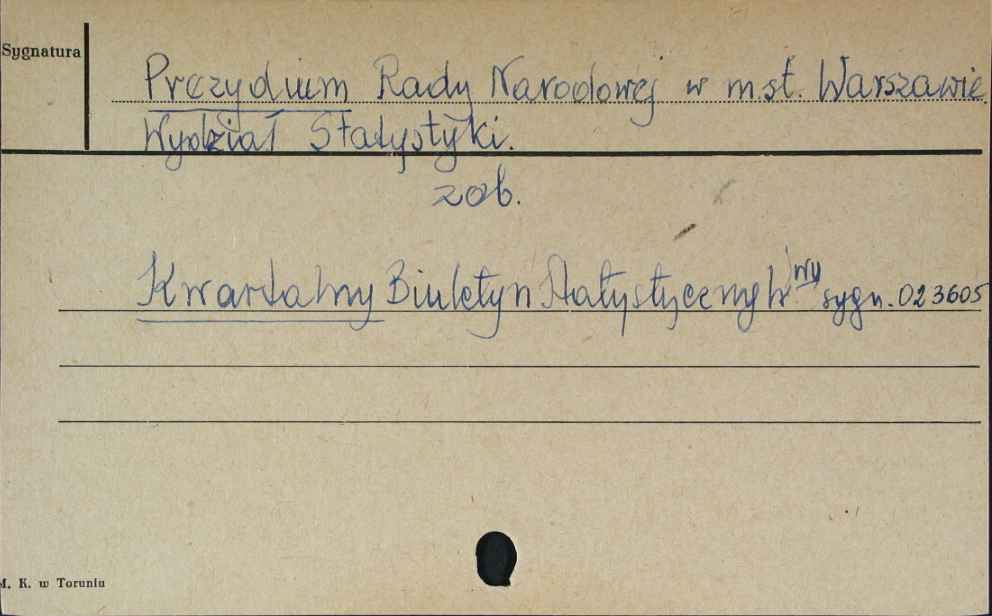 Sygnatura
Prezydium Rady Narodowej w m.st. Warszawie
Wydział Statystyki.
zob.
Kwartalny Biuletyn Statystyczny
wy
sygn. 023605
M. K. w Toruniu